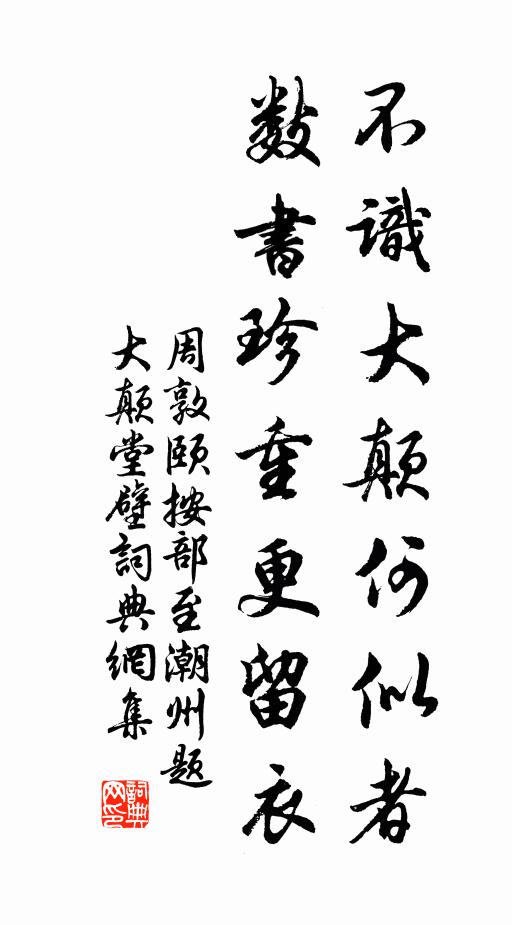 不識大顛何似者
數書珍重更留衣
周敦頤按部至潮州題
大顛堂壁詞典網集
詞典網印